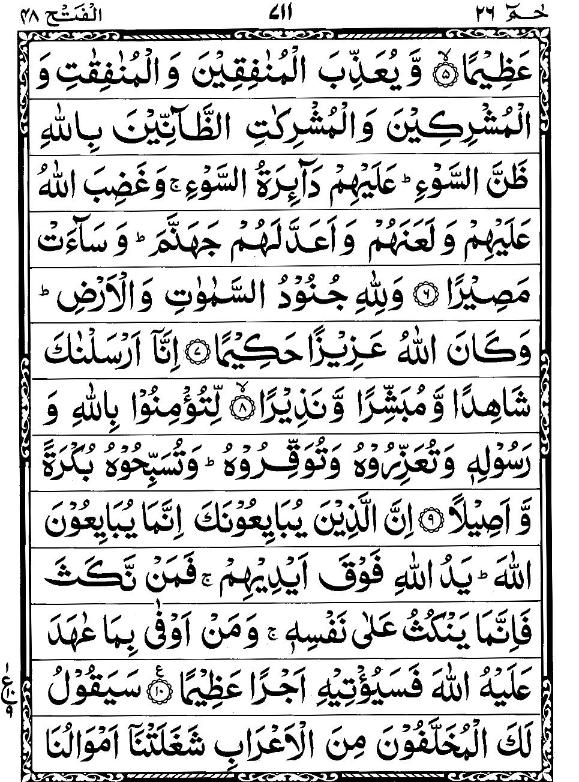 حٰمٓ ۲۶
۷۱۱
الْفَتْح ۴۸
عَظِیْمًا ۙ﴿۵﴾ وَّ یُعَذِّبَ الْمُنٰفِقِیْنَ وَ الْمُنٰفِقٰتِ وَ
الْمُشْرِكِیْنَ وَ الْمُشْرِكٰتِ الظَّآنِّیْنَ بِاللّٰهِ
ظَنَّ السَّوْءِ ؕ عَلَیْهِمْ دَآىِٕرَةُ السَّوْءِ ۚ وَ غَضِبَ اللّٰهُ
عَلَیْهِمْ وَ لَعَنَهُمْ وَ اَعَدَّ لَهُمْ جَهَنَّمَ ؕ وَ سَآءَتْ
مَصِیْرًا ﴿۶﴾ وَ لِلّٰهِ جُنُوْدُ السَّمٰوٰتِ وَ الْاَرْضِ ؕ
وَ كَانَ اللّٰهُ عَزِیْزًا حَكِیْمًا ﴿۷﴾ اِنَّاۤ اَرْسَلْنٰكَ
شَاهِدًا وَّ مُبَشِّرًا وَّ نَذِیْرًا ۙ﴿۸﴾ لِّتُؤْمِنُوْا بِاللّٰهِ وَ
رَسُوْلِهٖ وَ تُعَزِّرُوْهُ وَ تُوَقِّرُوْهُ ؕ وَ تُسَبِّحُوْهُ بُكْرَةً
وَّ اَصِیْلًا ﴿۹﴾ اِنَّ الَّذِیْنَ یُبَایِعُوْنَكَ اِنَّمَا یُبَایِعُوْنَ
اللّٰهَ ؕ یَدُ اللّٰهِ فَوْقَ اَیْدِیْهِمْ ۚ فَمَنْ نَّكَثَ
فَاِنَّمَا یَنْكُثُ عَلٰی نَفْسِهٖ ۚ وَ مَنْ اَوْفٰی بِمَا عٰهَدَ
عَلَیْهُ اللّٰهَ فَسَیُؤْتِیْهِ اَجْرًا عَظِیْمًا ﴿۱۰﴾ع سَیَقُوْلُ
لَكَ الْمُخَلَّفُوْنَ مِنَ الْاَعْرَابِ شَغَلَتْنَاۤ اَمْوَالُنَا
۱
ع ۱۰
۹